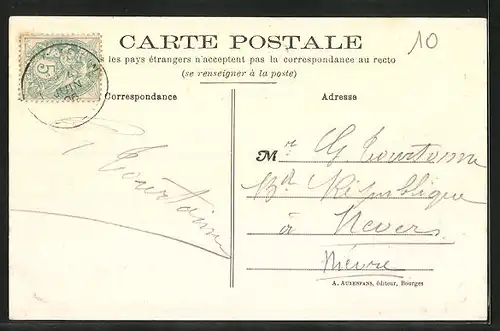 CARTE POSTALE
10
s les pays étrangers n'acceptent pas la correspondance au recto
(se renseigner à la poste)
Correspondance
Adresse
5
Mr G Tourtonne
Bd République
à Nevers
Nièvre
A. AUXENFANS, éditeur, Bourges